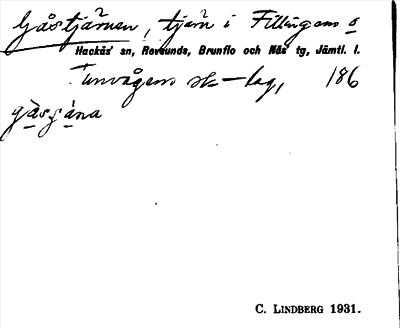 Gåstjärnen, tjärn i Fillingens o
Hackås' sn, Revsunds, Brunflo och Näs' tg, Jämtl. l.
Tunvågens sk-lag, 186
C. LINDBERG 1931.